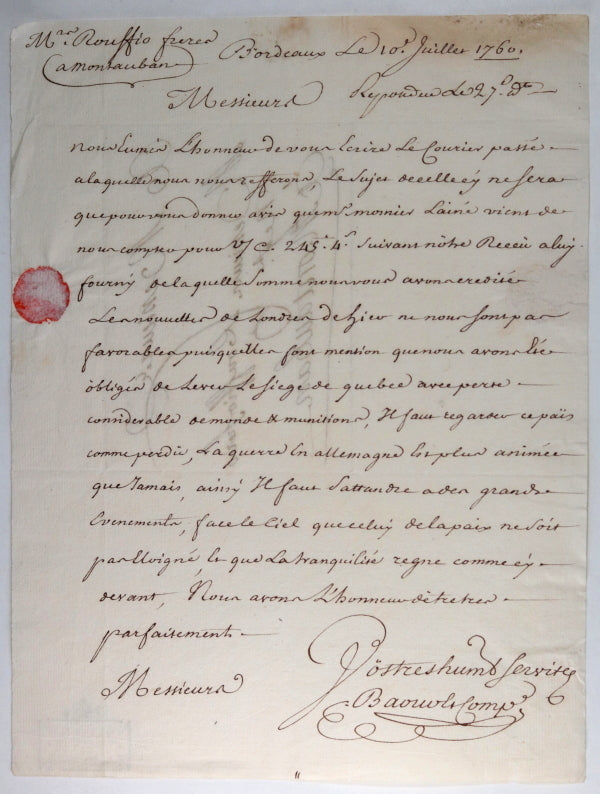 Mrs. Rouffio freres Bordeaux Le 10e. Juillet 1760.
a montauban
Messieurs Repondue Le 27e. do
nous Eumes L'honneur de vous Ecrire Le Courier passé
a laquelle nous nous refferons, Le Sujet de celle cy ne sera
que pour vous donner avis que mr. monier Lainé vient de
nous compter pour V/C. 245lt. 4s. suivant nôtre Receü a luy
fourny de laquelle somme nous vous avons credités
Les nouvelles de Londres de hier ne nous sont pas
favorables puisquelles font mention que nous avons Eté
öbligés de Lever Le siege de quebec avec perte
considerable de monde & munitions, Il faut regarder ce païs
comme perdu, La guerre En allemagne Est plus animée
que Jamais, ainsy Il faut sattandre a des grands
Evenements, face le Ciel que celuy de la paix ne soit
pas Eloigné, Et que La tranquilité regne comme cy
devant, Nous avons L'honneur dêtre tres
parfaitement
Messieurs Vöstres humbs Servites
Baour & Compe.